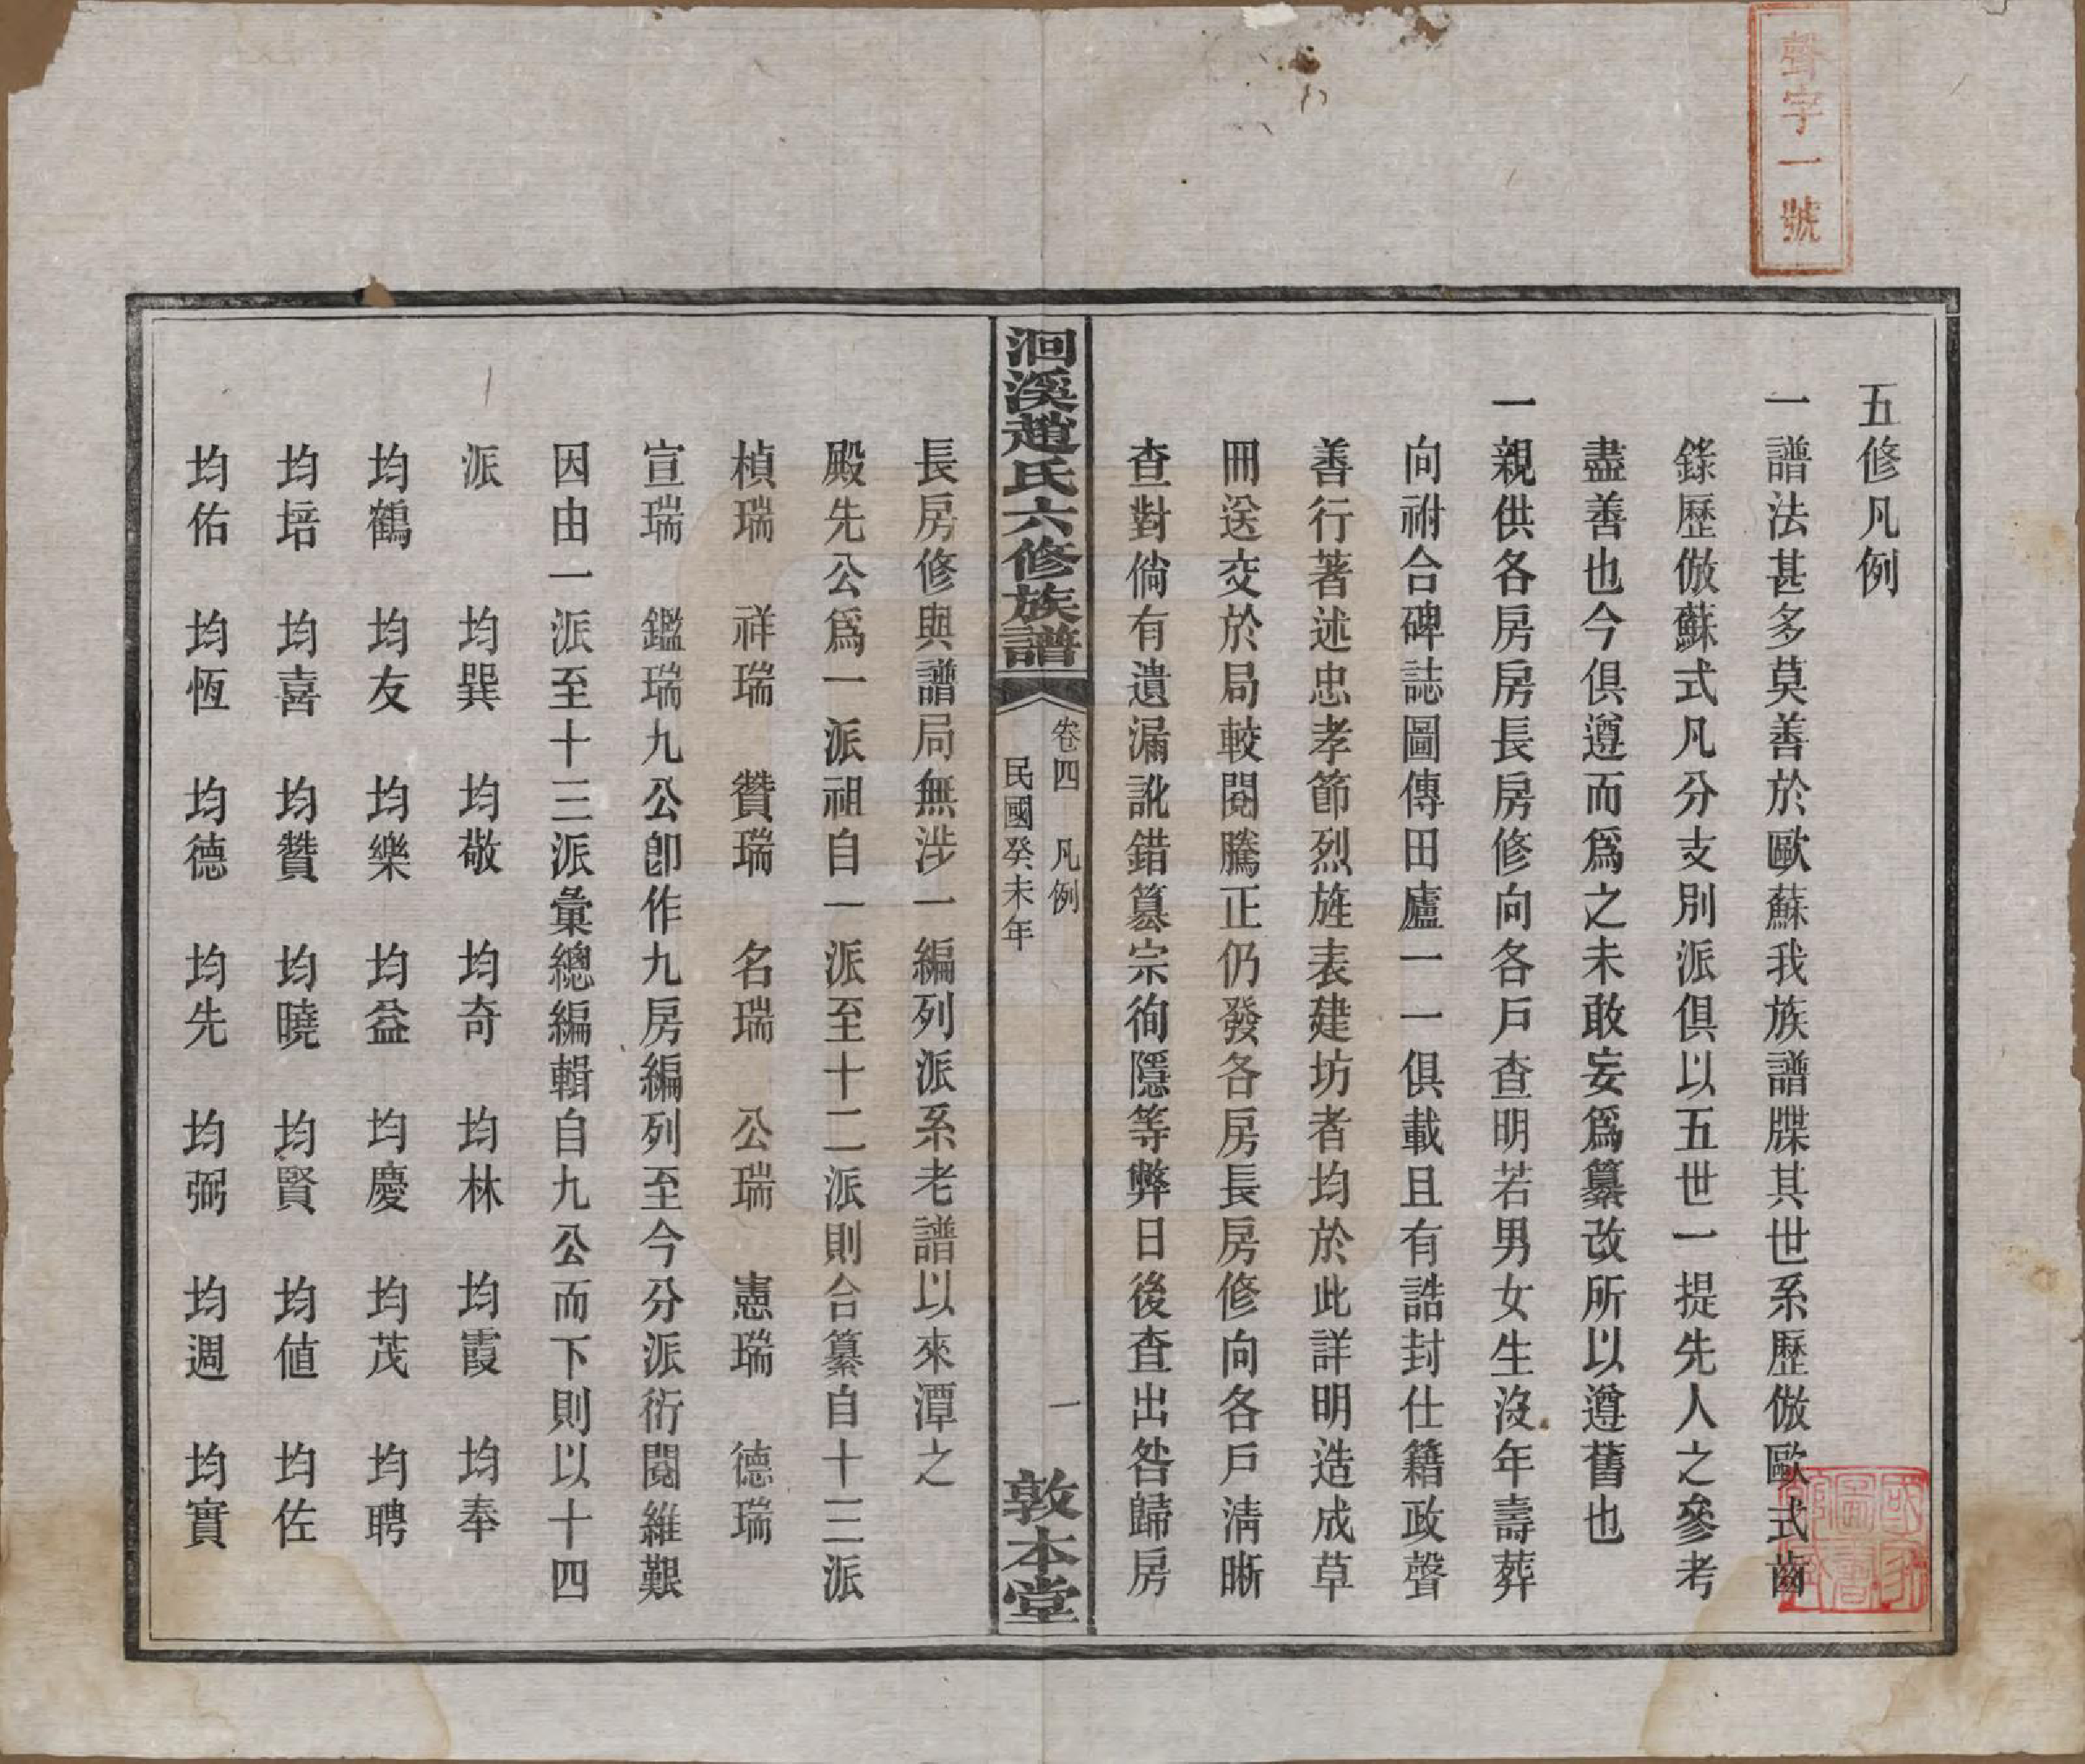 聲字一號
五修凡例
一譜法甚多莫善於歐蘇我族譜牒其世系歷倣歐式齒
錄歷倣蘇式凡分支別派俱以五世一提先人之參考
盡善也今俱遵而爲之未敢妄爲纂改所以遵舊也
一親供各房房長房修向各戶查明若男女生沒年壽葬
向祔合碑誌圖傳田廬一一俱載且有誥封仕籍政聲
善行著述忠孝節烈旌表建坊者均於此詳明造成草
冊送交於局較閱騰正仍發各房長房修向各戶淸晰
查對倘有遺漏訛錯篡宗徇隱等弊日後查出咎歸房
洄溪趙氏六修族譜
卷四 凡例
民國癸未年
一
敦本堂
長房修與譜局無涉一編列派系老譜以來潭之
殿先公爲一派祖自一派至十二派則合纂自十三派
楨瑞 祥瑞 贊瑞 名瑞 公瑞 憲瑞 德瑞
宣瑞 鑑瑞九公卽作九房編列至今分派衍閱維艱
因由一派至十三派彙總編輯自九公而下則以十四
派 均巽 均敬 均奇 均林 均霞 均奉
均鶴 均友 均樂 均益 均慶 均茂 均聘
均培 均喜 均贊 均曉 均賢 均値 均佐
均佑 均恆 均德 均先 均弼 均週 均實